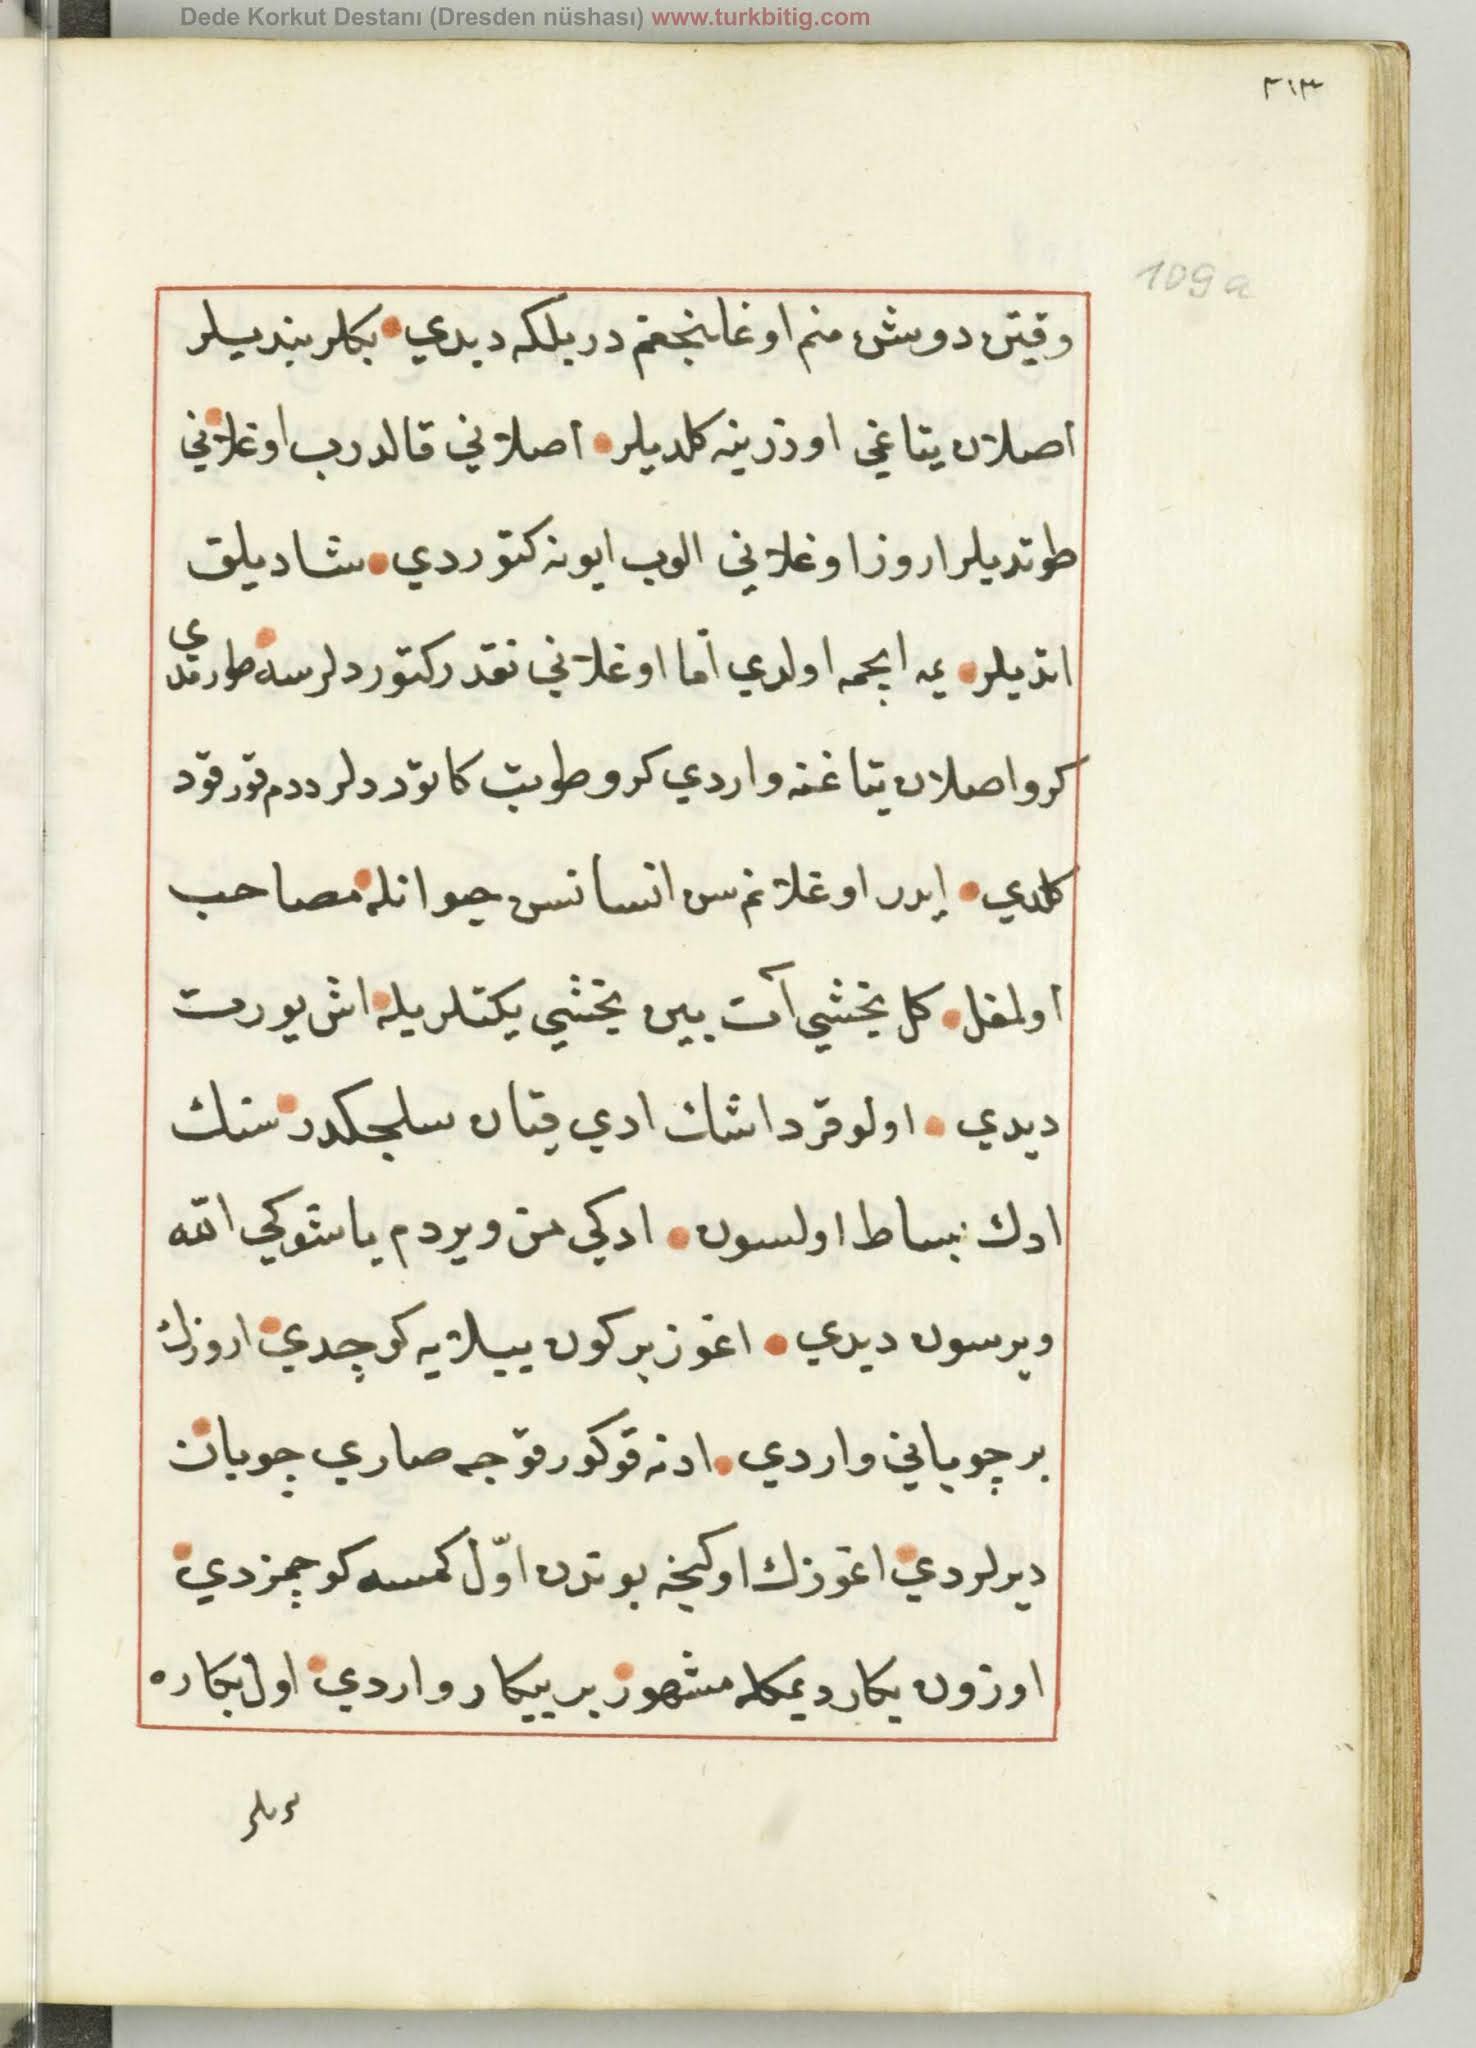 Dede Korkut Destanı (Dresden nüshası) www.turkbitig.com
٢١٣
109a
وقتین دوشن منم اوغلنجغم در بلکه دیدي بکلر بندیلر
اصلان یتاغي اوزرینه کلدیلر اصلاني قالدرب اوغلاني
طوتدیلر اروز اوغلاني الوب ایونه کتوردي شادیلق
اتدیلر یمه ایچمه اولدي امّا اوغلاني نقدر کتوردلرسه طورمدي
کرو اصلان یتاغنه واردي کرو طوتب کاتوردلر ددم قورقود
کلدي ایدر اوغلانم سن انسانسن حیوانله مصاحب
اولمغل کل یخشي آت بین یخشي یکتلریله اش یورت
دیدي اولو قرداشك ادي قیان سلجکدر سنك
ادك بساط اولسون ادکي من ویردم یاشوکي الله
ویرسون دیدي اغوز بر کون ییلایه کوچدي اروزك
بر چوباني واردي ادنه قوکور قوجه صاري چوبان
دیرلردي اغوزك اوکنجه بوندن اوّل کمسه کوچمزدي
اوزون بکار دیمکله مشهور بر بیکار واردي اول بکاره
پریلر